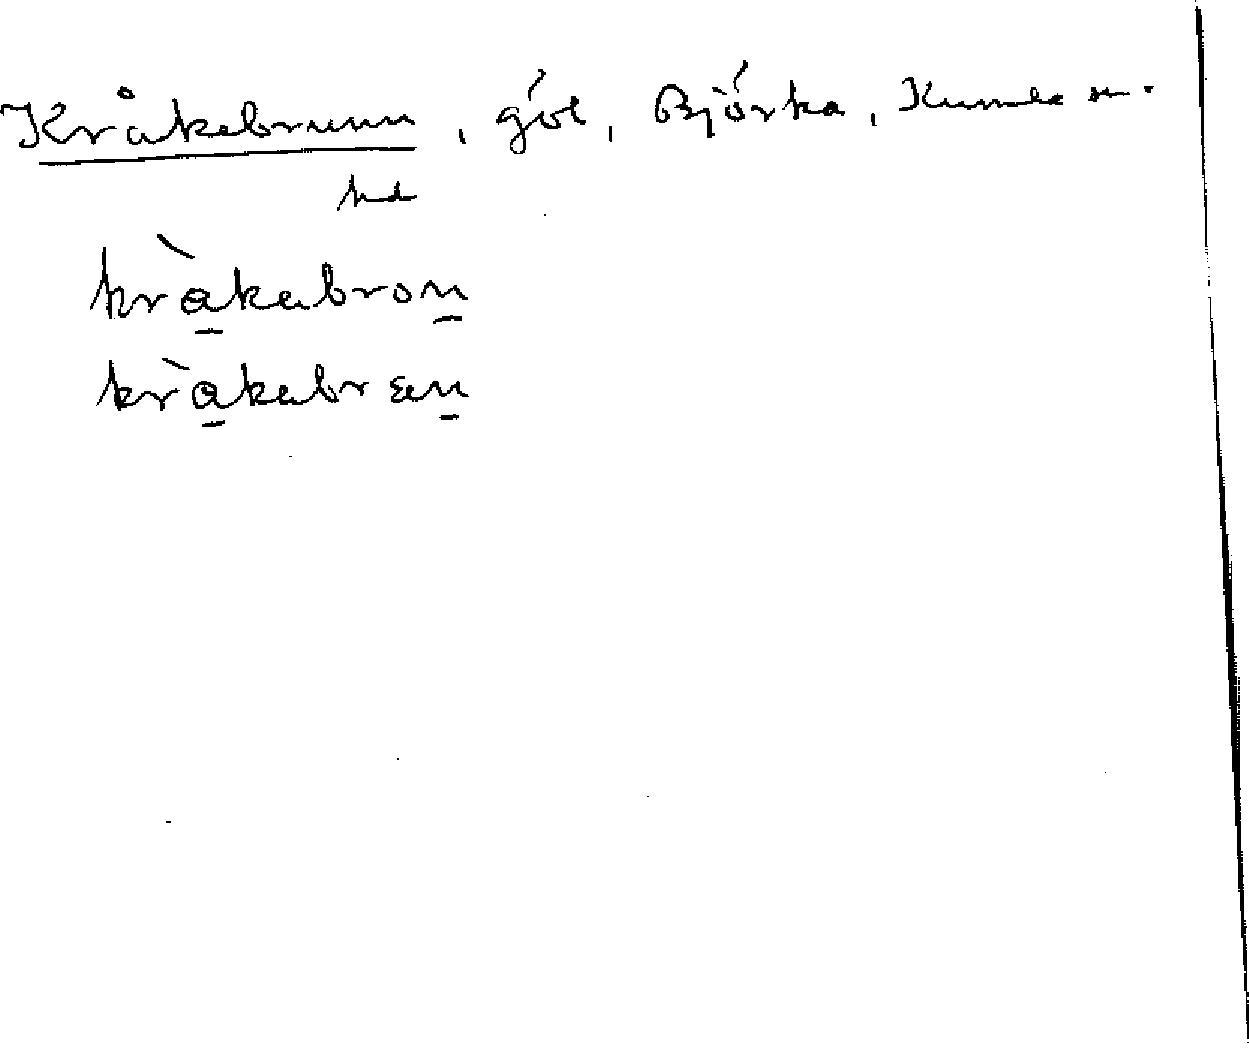 Kråkebrunn, göl, Björka, Kumla sn.
hd
kràkabron
kràkabræn